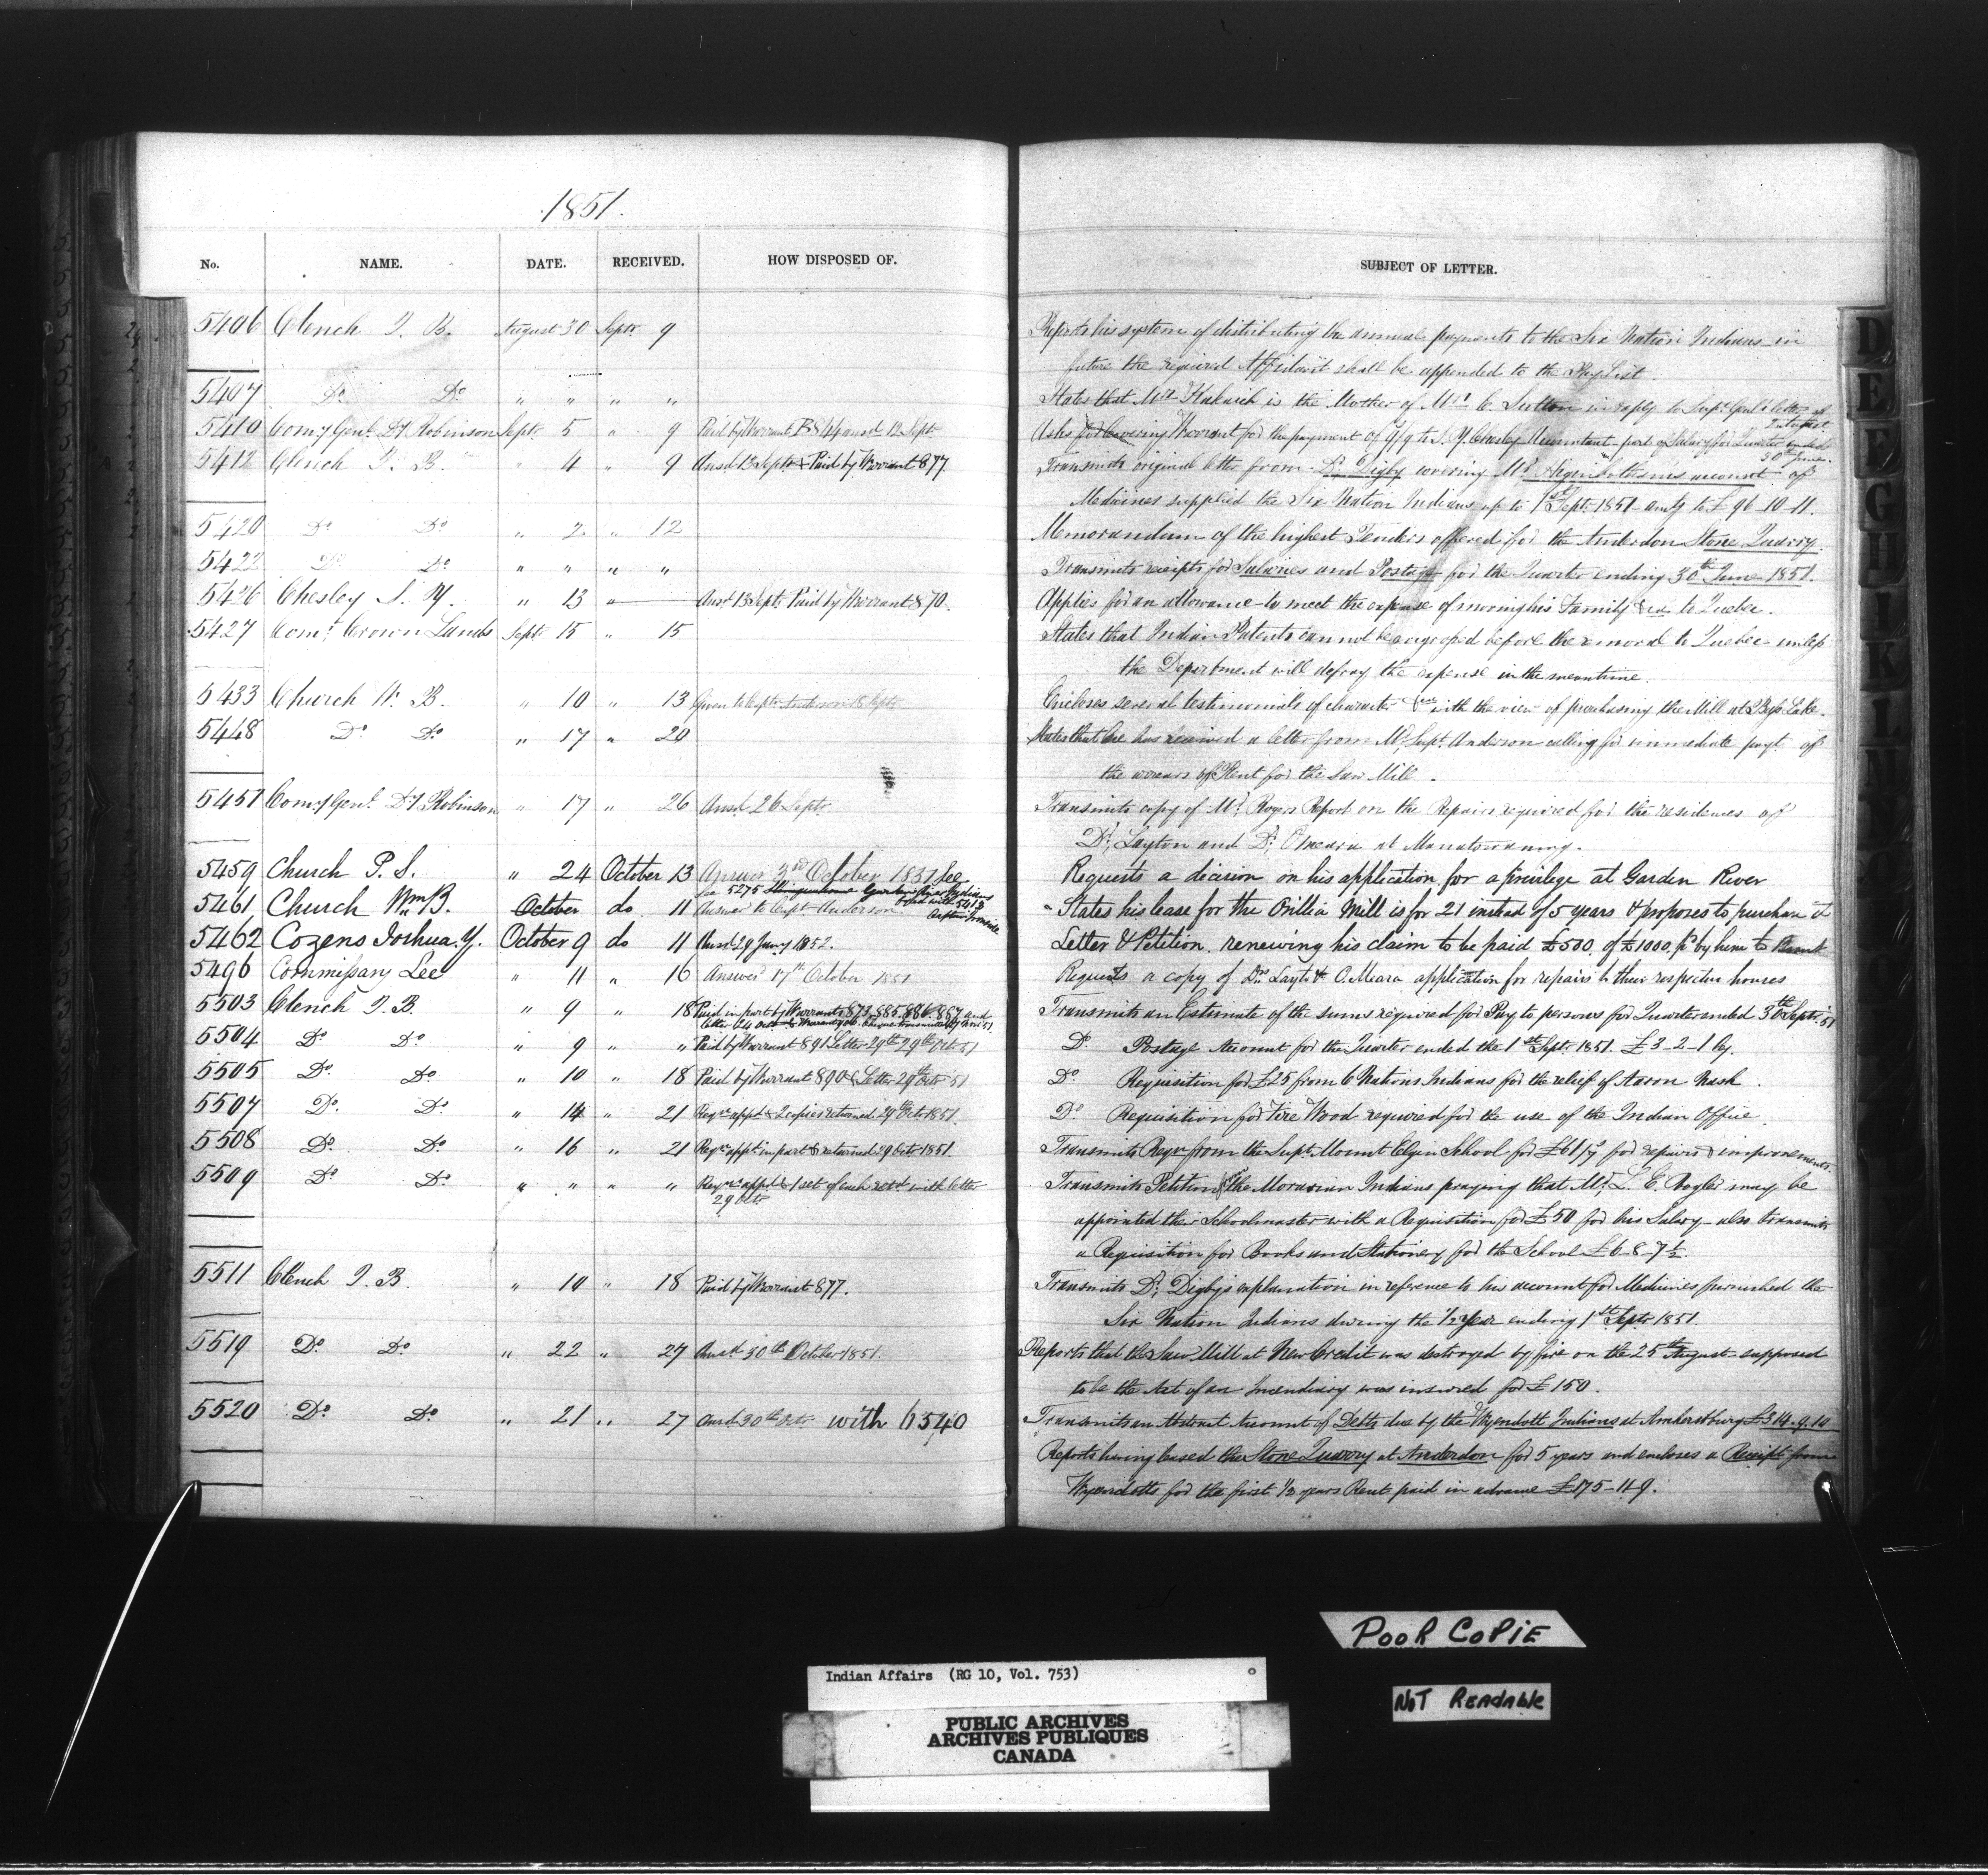 1851.
No. NAME. DATE. RECEIVED. HOW DISPOSED OF. SUBJECT OF LETTER.
5406 Clench J. B. August 30 Septr 9 Reports his system of distributing the annual payments to the Six Nation Indians in
future the required Affidavit shall be appended to the Pay List
5407 Do Do " " " " States that Mrs is the Mother of Mrs C. Sutton in reply to Supt Genl's letter of
August
5410 Comy Genl Robinson Septr 5 " 9 Paid by Warrant 844 ansd 12 Septr Asks for Covering Warrant for the payment of to S. Y. Chesley Accountant part of Salary for Quarter ended
30th June
5412 Clench J. B. " 4 " 9 Ansd 13 Septr & Paid by Warrant 877 Transmits original letter from Dr Digby covering Mr account of
Medicines supplied the Six Nation Indians up to 1st Septr 1851 amtg to £96-10-11.
5420 Do Do " 2 " 12 Memorandum of the highest Tenders offered for the Anderdon Stone Quarry.
5422 Do Do " " " " Transmits receipts for Salaries and Postage for the Quarter ending 30th June 1851.
5426 Chesley S. Y. " 13 " Ansd 13 Septr Paid by Warrant 870. Applies for an allowance to meet the expense of moving his Family &ca to Quebec.
5427 Comr Crown Lands Septr 15 " 15 States that Indian Patents cannot be engrossed before the removal to Quebec unless
the Department will defray the expense in the meantime.
5433 Church W. B. " 10 " 13 Given to Captn Anderson 18 Septr Encloses several testimonials of character &ca with the view of purchasing the Mill at Bass Lake.
5448 Do Do " 17 " 20 States that he has received a letter from Mr Supt Anderson calling for immediate payt of
the arrears of Rent for the Saw Mill.
5451 Comy Genl Robinson " 17 " 26 Ansd 26 Septr Transmits copy of Mr Rogers Report on the Repairs required for the residences of
Dr Layton and Dr Omeara at Manatowaning.
5459 Church P. S. " 24 October 13 Answd 3rd October 1851 See Requests a decision on his application for a privilege at Garden River
for 5275 Garden River Indians
5461 Church Wm B. October do 11 Answer to Captn Anderson States his lease for the Orillia Mill is for 21 instead of 5 years & proposes to purchase it
5462 Cozens Joshua. Y. October 9 do 11 Ansd 29 Jany 1852. Letter & Petition renewing his claim to be paid £500 of £1000 pd by him to Brant
5496 Commissary Lee " 11 " 16 Answd 17th October 1851 Requests a copy of Drs Layton & O.Meara application for repairs to their respective houses
5503 Clench J. B. " 9 " 18 Paid in part by Warrants 873. 885. 886. 887 and Transmits an Estimate of the sums required for Pay to persons for Quarter ended 30th Septr 51
5504 Do Do " 9 " " Paid by Warrant 891 Letter 29th 29th Oct 51 Do Postage Account for the Quarter ended the 1st Septr 1851. £3-2-1 Cy.
5505 Do Do " 10 " 18 Paid by Warrant 890 & Letter 29th Octr 51 Do Requisition for £25 from 6 Nations Indians for the relief of Aaron Nash.
5507 Do Do " 14 " 21 Reqn appd & 2 copies returned 29th Octr 1851. Do Requisition for Fire Wood required for the use of the Indian Office.
5508 Do Do " 16 " 21 Reqn appd in part & returned 29 Octr 1851. Transmits Reqn from the Supt Mount Elgin School for £61/ for repairs & improvements.
5509 Do Do " " " " Reqns appd & 1 set of each retd with letter Transmits Petition from the Moravian Indians praying that Mr L. E. Vogler may be
29 Octr
appointed their Schoolmaster with a Requisition for £50 for his Salary – also transmits
a Requisition for Books and Stationery for the School £6-8-7½.
5511 Clench J. B. " 10 " 18 Paid by Warrant 877. Transmits Dr Digby's explanation in reference to his account for Medicines furnished the
Six Nation Indians during the ½ Year ending 1st Septr 1851.
5519 Do Do " 22 " 27 Answd 30th October 1851. Reports that the Saw Mill at New Credit was destroyed by fire on the 25th August supposed
to be the Act of an Incendiary was insured for £150.
5520 Do Do " 21 " 27 Ansd 30th Octr with 6540 Transmits an Abstract Account of Debts due by the Wyendott Indians at Amherstburg £314-9-10
Reports having leased the Stone Quarry at Anderdon for 5 years and encloses a Receipt from
Wyendotts for the first ½ years Rent paid in advance £175-11-9.
D
E
F
G
H
I
K
L
POOR COPIE
NOT READABLE
Indian Affairs (RG 10, Vol. 753)
PUBLIC ARCHIVES
ARCHIVES PUBLIQUES
CANADA